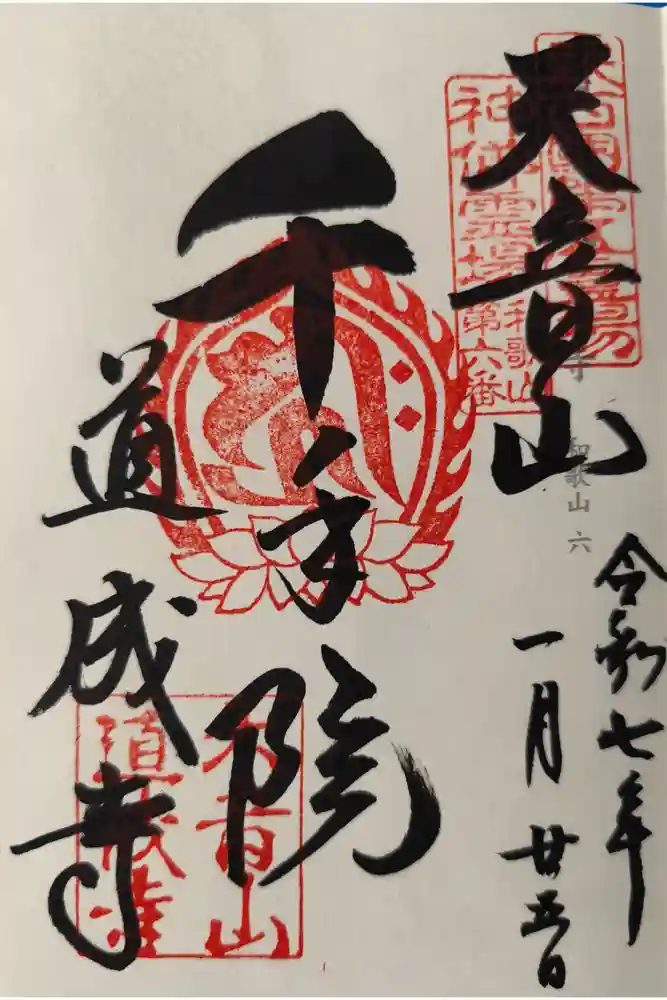 天音山
神佛霊場
和歌山
第六番
和歌山 六
令和七年
一月廿五日
千手院
道成寺
天音山
道成寺